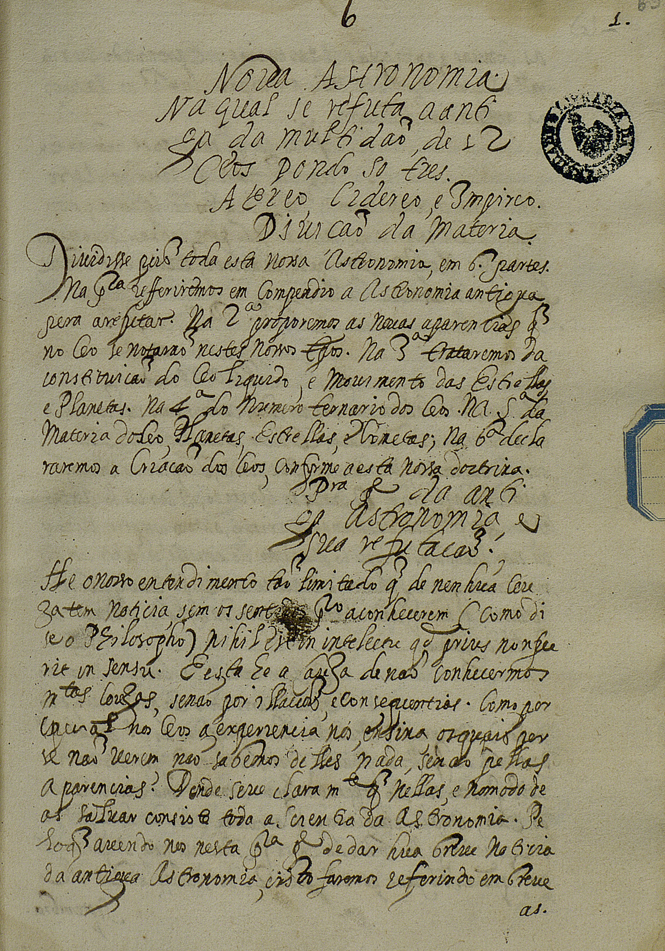 6
1.
Nova Astronomia.
Na qual se refuta a anti
ga da multidaõ, de 12
Ceos pondo so tres.
Aereo Cidereo, e Empireo.
Diuicaõ da Materia.
Diuidisse pois toda esta nossa Astronomia, em 6. partes.
Na pra refferiremos em Compendio a Astronomia antigua
pera a refutar. Na 2ª proporemos as novas aparencias q̃
no Ceo se notaraõ nestes nossos tpos. Na 3ª trataremos da
constituicaõ do Ceo liquido, e mouimento das Estrellas
e Planetas. Na 4ª do Numero ternario dos Ceos. Na 5ª da
Materia do Ceo, Planetas, Estrellas, e Cometas; Na 6ª decla
raremos a Criacaõ dos Ceos, conforme a esta nossa doctrina.
Pra p da anti
ga Astronomia, e
sua refutacaõ.
He o nosso entendimento taõ limitado q̃ de nenhũa cou
za tem noticia sem os sentidos pro a conhecerem (Como di
se o Philosopho) nihil est in intelectu qd prius non fue
rit in sensu. E esta he a cauza de naõ conhecermos
mtas couzas, senaõ por illacoẽs, e consequentias. Como por
nos Ceos a experiencia nos ensina os quais por
se naõ uerem naõ sabemos delles nada, senaõ pellas
aparencias. Donde se ue claramte q̃ nellas, e no modo de
as saluar consiste toda a scientia da Astronomia. Pe
lo q̃ auendo nos nesta pra p de dar hũa breue noticia
da antigua Astronomia, isto faremos referindo em breue
as.